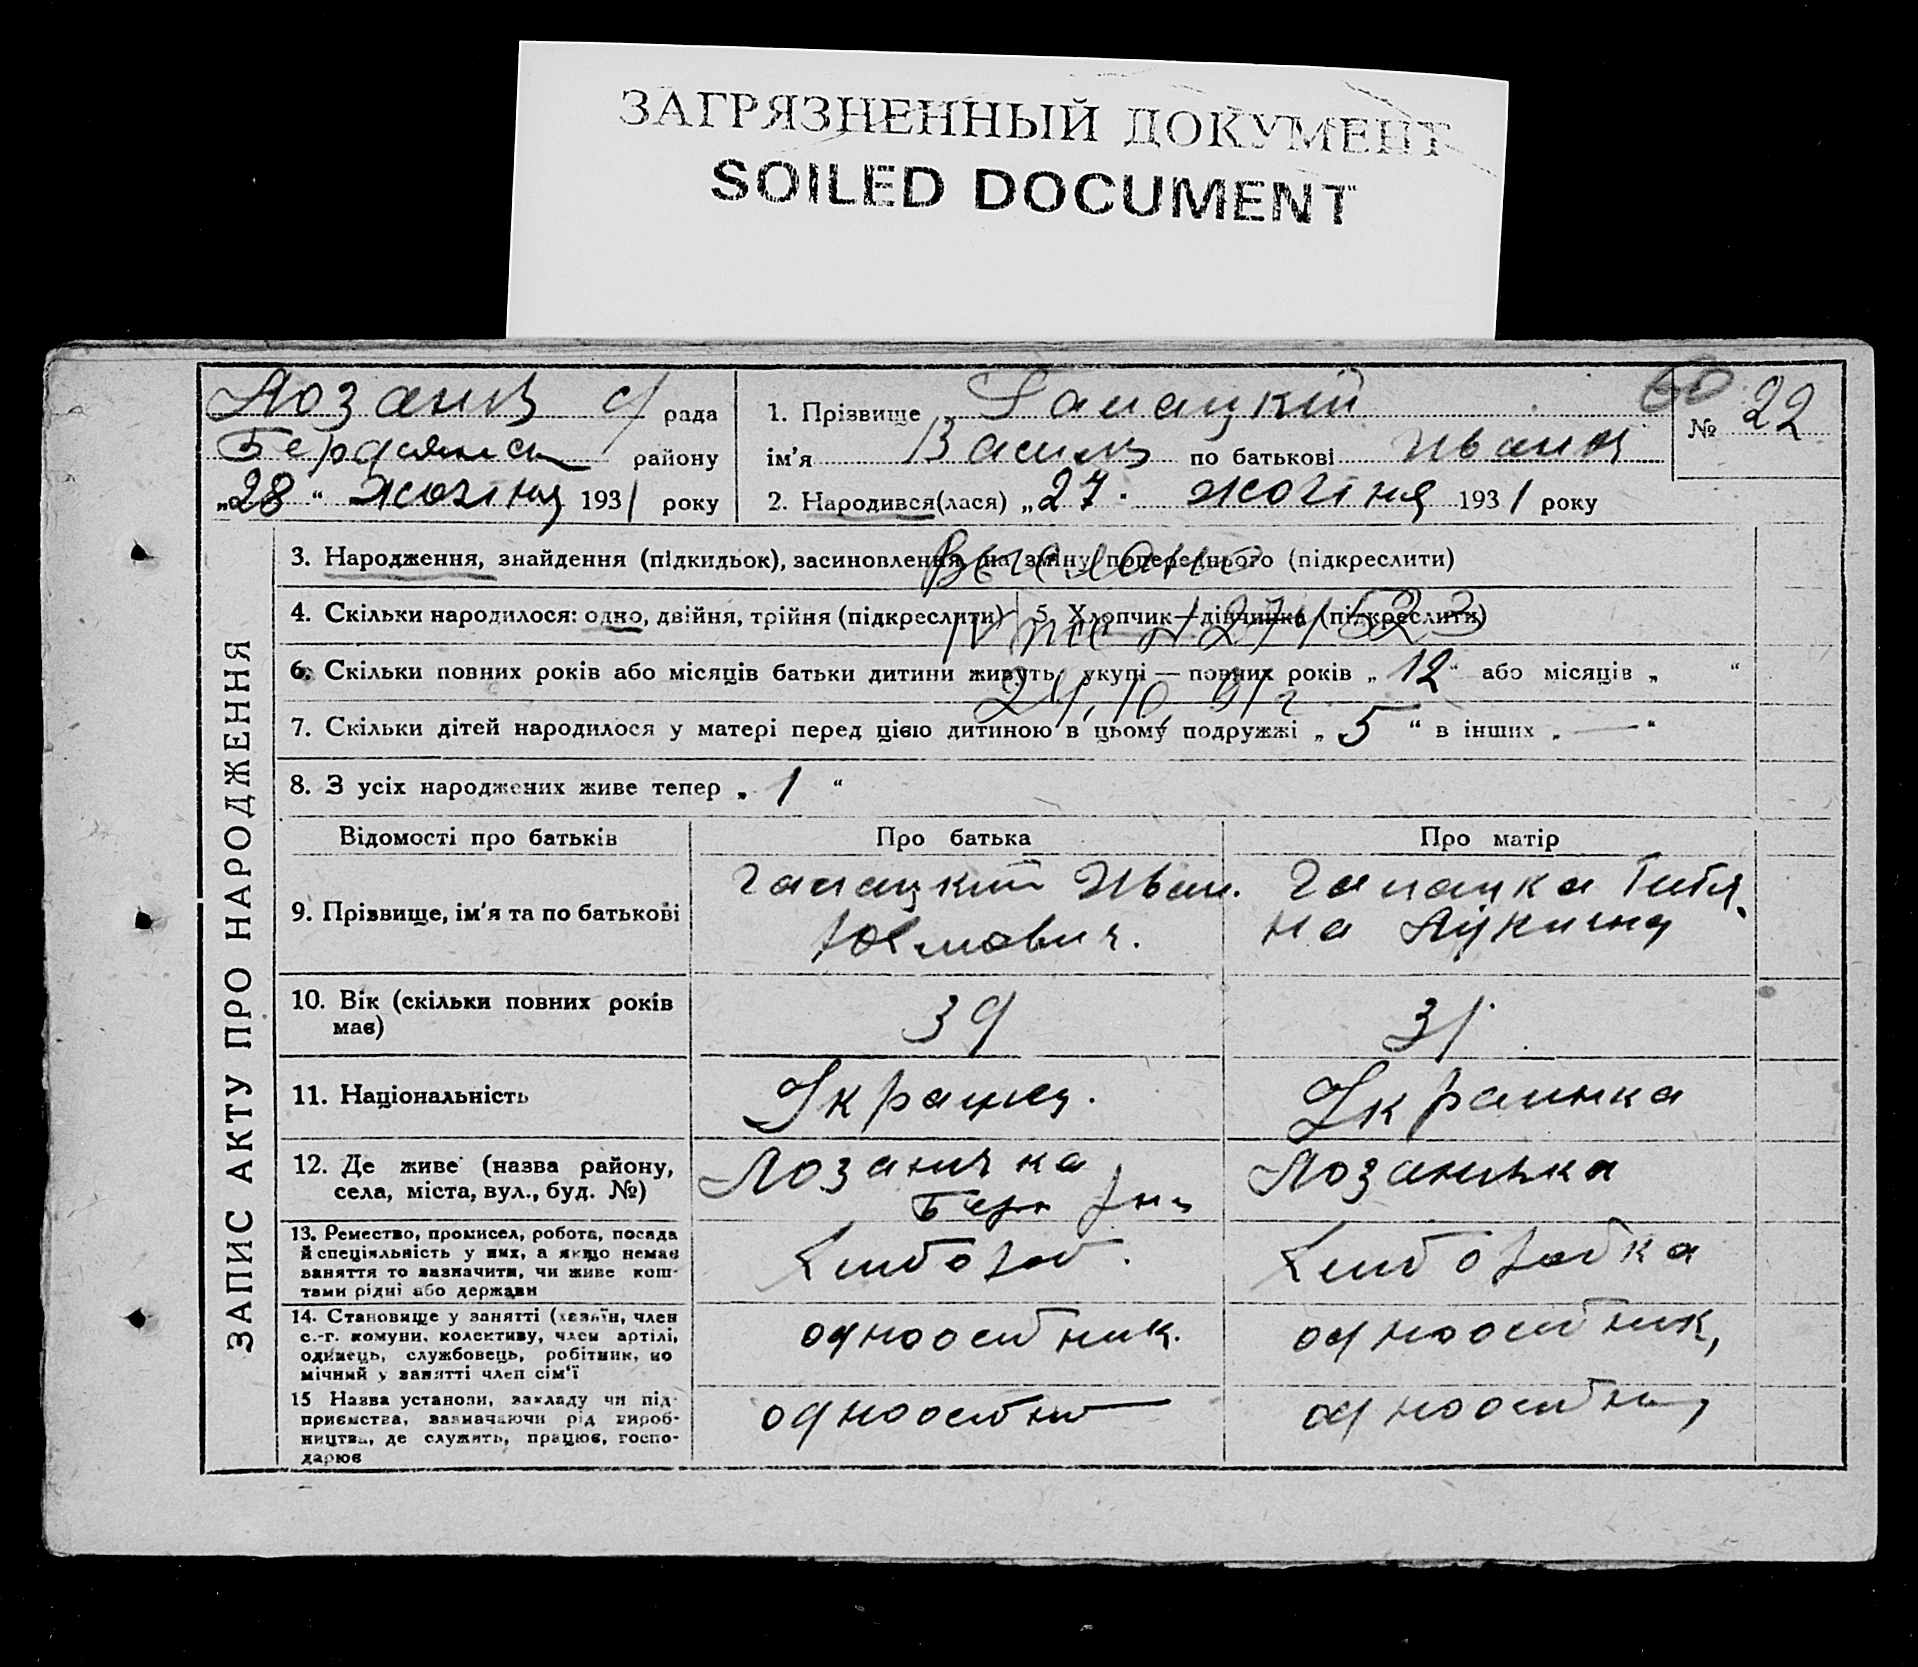 ЗАГРЯЗНЕННЫЙ ДОКУМЕНТ
SOILED DOCUMENT
Лозанів с/ рада
Бердянськ району
„28“ жовтня 1931 року
1. Прізвище Гапацкій
ім'я Василь по батькові Іванов
2. Народився(лася) „27. жовтня 1931 року
60
№ 22
ЗАПИС АКТУ ПРО НАРОДЖЕННЯ
3. Народження, знайдення (підкидьок), засиновлення, на зміну попереднього (підкреслити)
4. Скільки народилося: одно, двійня, трійня (підкреслити) 5. Хлопчик—дівчинка (підкреслити)
6. Скільки повних років або місяців батьки дитини живуть укупі — повних років „12“ або місяців „ “
7. Скільки дітей народилося у матері перед цією дитиною в цьому подружжі „5“ в інших „—“
8. З усіх народжених живе тепер „1“
Відомості про батьків Про батька Про матір
9. Прізвище, ім'я та по батькові
Гапацкий Иван.
Гапацка Татя
на Лукична
10. Вік (скільки повних років
має)
39
31.
11. Національність
Українец.
Украинка
12. Де живе (назва району,
села, міста, вул., буд. №)
Лозаничка
Лозанька
13. Ремество, промисел, робота, посада
й спеціяльність у них, а якщо немає
заняття то зазначити, чи живе кош-
тами рідні або держави
Хлібороб.
Хліборобка
14. Становище у занятті (хазяїн, член
с.-г. комуни, колективу, член артілі,
одинець, службовець, робітник, по
мічний у занятті член сім'ї
одноосібник.
одноосібник,
15 Назва установи, закладу чи під-
приємства, зазначаючи рід вироб-
ництва, де служить, працює, госпо-
дарює
одноосібн
одноосібн